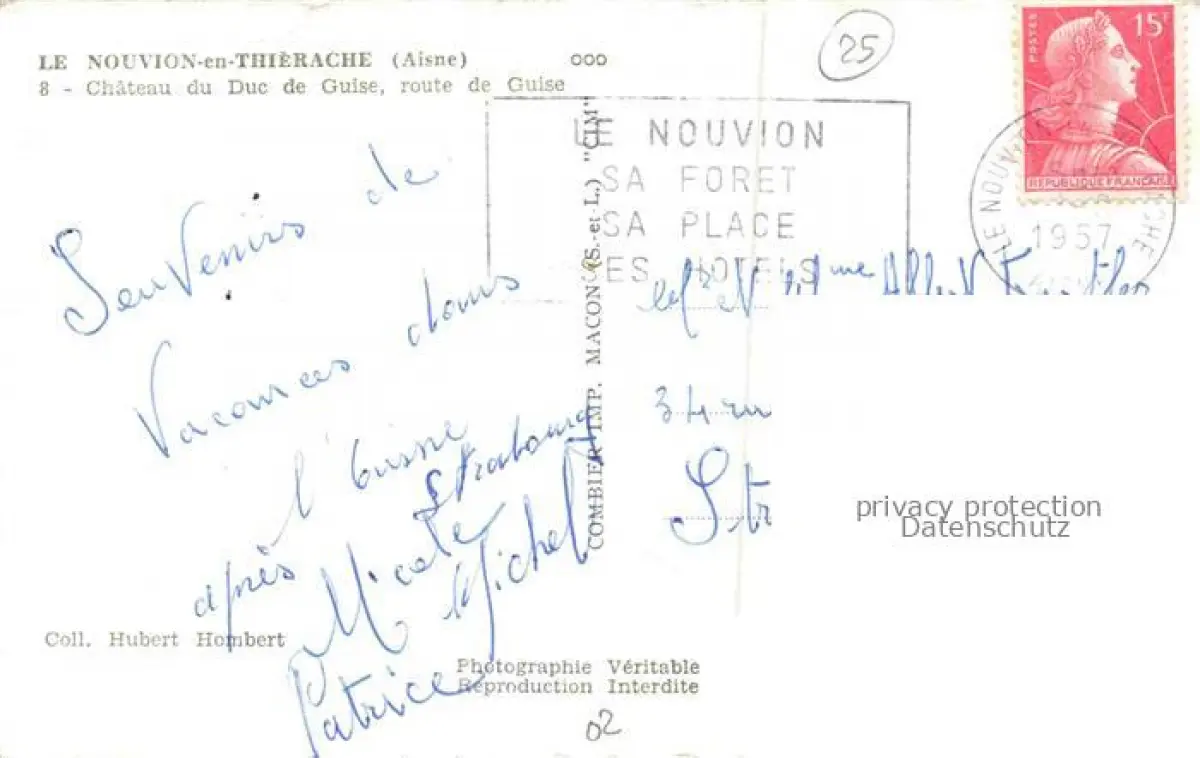 LE NOUVION-en-THIÈRACHE (Aisne) ooo
8 - Château du Duc de Guise, route de Guise
25
POSTES 15F
REPUBLIQUE FRANÇAISE
LE NOUVION
SA FORET
SA PLAGE
SES HOTELS
LE NOUV
CHE
1957
COMBIER IMP. MACON (S.-et-L.) "CIM"
Souvenirs de
Vacances dans
l'Aisne
après Strabourg
Nicole
Michel
Patrice
et Mme Albert
34 ru
Str
privacy protection
Datenschutz
Coll. Hubert Hombert
Photographie Véritable
Reproduction Interdite
02